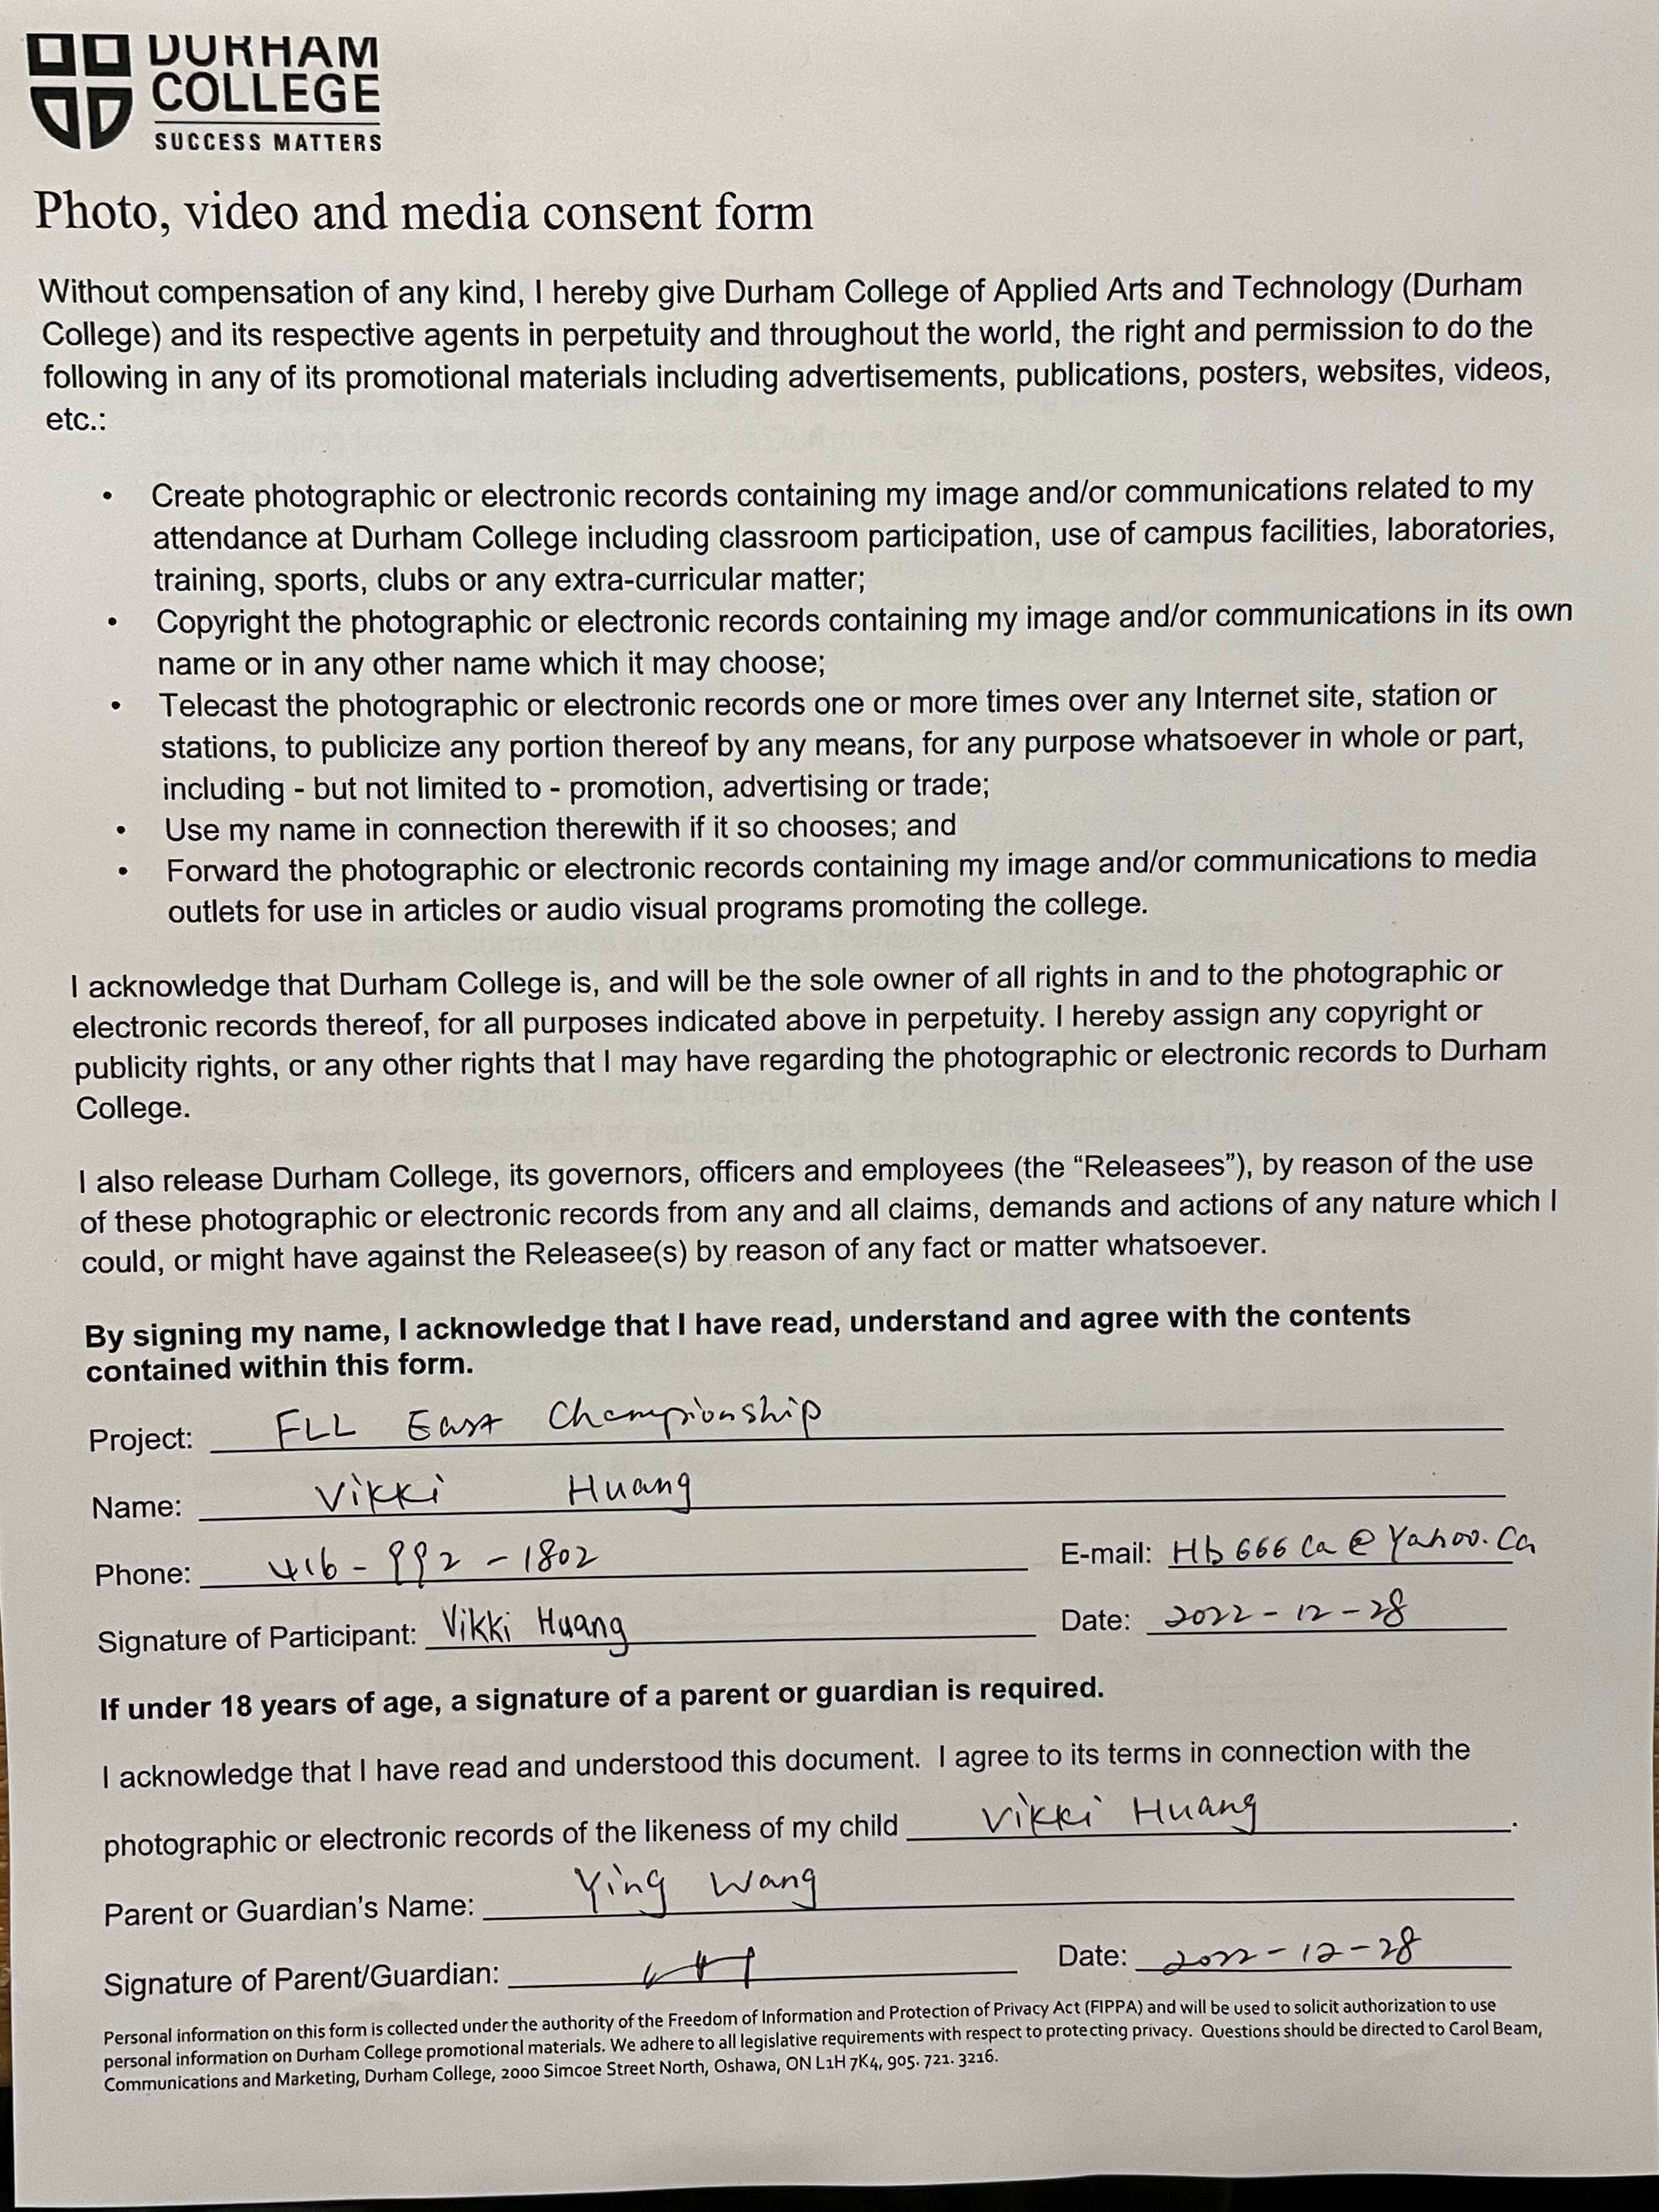 DURHAM
COLLEGE
SUCCESS MATTERS
Photo, video and media consent form
Without compensation of any kind, I hereby give Durham College of Applied Arts and Technology (Durham
College) and its respective agents in perpetuity and throughout the world, the right and permission to do the
following in any of its promotional materials including advertisements, publications, posters, websites, videos,
etc.:
• Create photographic or electronic records containing my image and/or communications related to my
attendance at Durham College including classroom participation, use of campus facilities, laboratories,
training, sports, clubs or any extra-curricular matter;
• Copyright the photographic or electronic records containing my image and/or communications in its own
name or in any other name which it may choose;
• Telecast the photographic or electronic records one or more times over any Internet site, station or
stations, to publicize any portion thereof by any means, for any purpose whatsoever in whole or part,
including - but not limited to - promotion, advertising or trade;
• Use my name in connection therewith if it so chooses; and
• Forward the photographic or electronic records containing my image and/or communications to media
outlets for use in articles or audio visual programs promoting the college.
I acknowledge that Durham College is, and will be the sole owner of all rights in and to the photographic or
electronic records thereof, for all purposes indicated above in perpetuity. I hereby assign any copyright or
publicity rights, or any other rights that I may have regarding the photographic or electronic records to Durham
College.
I also release Durham College, its governors, officers and employees (the “Releasees”), by reason of the use
of these photographic or electronic records from any and all claims, demands and actions of any nature which I
could, or might have against the Releasee(s) by reason of any fact or matter whatsoever.
By signing my name, I acknowledge that I have read, understand and agree with the contents
contained within this form.
Project: FLL East Championship
Name: Vikki Huang
Phone: 416-992-1802 E-mail: Hb666ca@Yahoo.Ca
Signature of Participant: Vikki Huang Date: 2022-12-28
If under 18 years of age, a signature of a parent or guardian is required.
I acknowledge that I have read and understood this document. I agree to its terms in connection with the
photographic or electronic records of the likeness of my child Vikki Huang.
Parent or Guardian's Name: Ying Wang
Signature of Parent/Guardian: Date: 2022-12-28
Personal information on this form is collected under the authority of the Freedom of Information and Protection of Privacy Act (FIPPA) and will be used to solicit authorization to use
personal information on Durham College promotional materials. We adhere to all legislative requirements with respect to protecting privacy. Questions should be directed to Carol Beam,
Communications and Marketing, Durham College, 2000 Simcoe Street North, Oshawa, ON L1H 7K4, 905. 721. 3216.